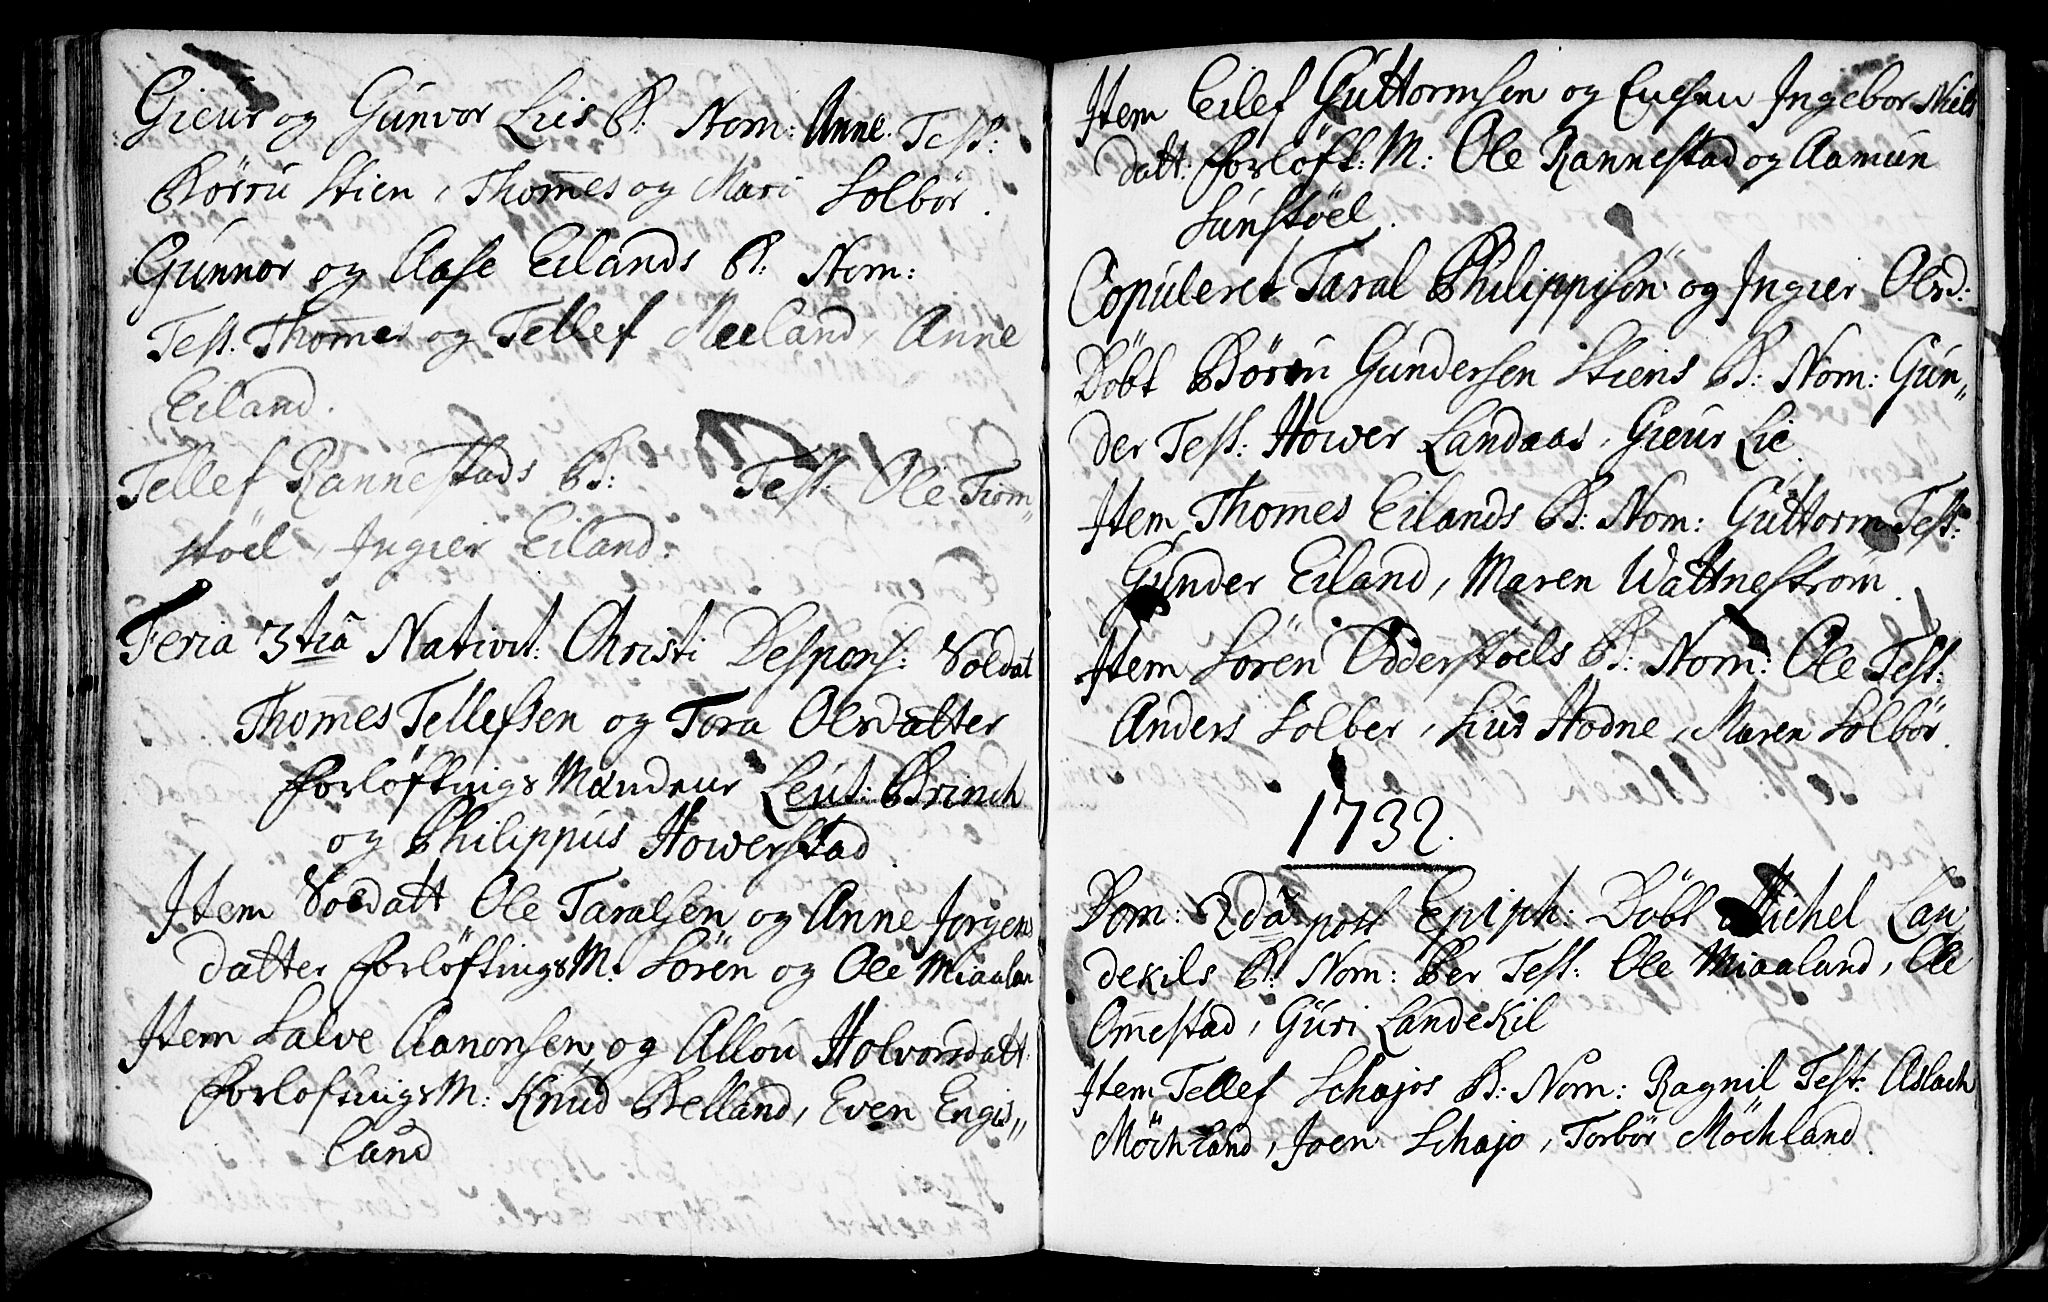 Gieur og Gunvor Lies B: Nom: Anne. Test:
Börru Stien, Thom̄es og Mari Solbör.
Gunnor og Aase Eilands B: Nom:
Test. Thom̄es og Tellef Meeland, Anne
Eiland.
Tellef Rannestads B: Test. Ole Trom„
stöel, Ingier Eiland:
Feria 3tiâ Nativit: Christi Despons: Soldat
Thom̄es Tellefsen og Tora Olsdatter
Forlöftnings Mændene Leut: Brinch
og Philippus Howerstad
Item Soldatt Ole Taralsen og Anne Jorgens
datter Forlöftnings M: Sören og Ole Miaalan
Item Salve Aanonsen, og Allou Holvorsdatt:
Forloftnings M: Knud Belland, Even Engis„
land
Item Eilef Guttormsen og Ingebor Niels
datt: Forlöft: M: Ole Rannestad og Aamun
Sunstöel.
Copuleret Taral Philippisön og Ingier Olsd:
Döbt Börru Gundersen Stiens B: Nom: Gun„
der Test: Hower Landaas, Gieur Lie.
Item Thom̄es Eilands B: Nom: Guttorm Test:
Gunder Eiland, Maren Wattnestrom.
Item Sören Odderstöels B: Nom: Ole Test:
Anders Solber, Siur Hodne, Maren Solbör.
1732.
Dom: 2dâ post Epiph: Döbt Michel Lan
dekils B: Nom: Per Test: Ole Miaaland, Ole
Om̄estad, Guri Landekil
Item Tellef Schajos B: Nom: Ragnil Test: Aslach
Möchland, Joen Schajo, Torbör Möchland.